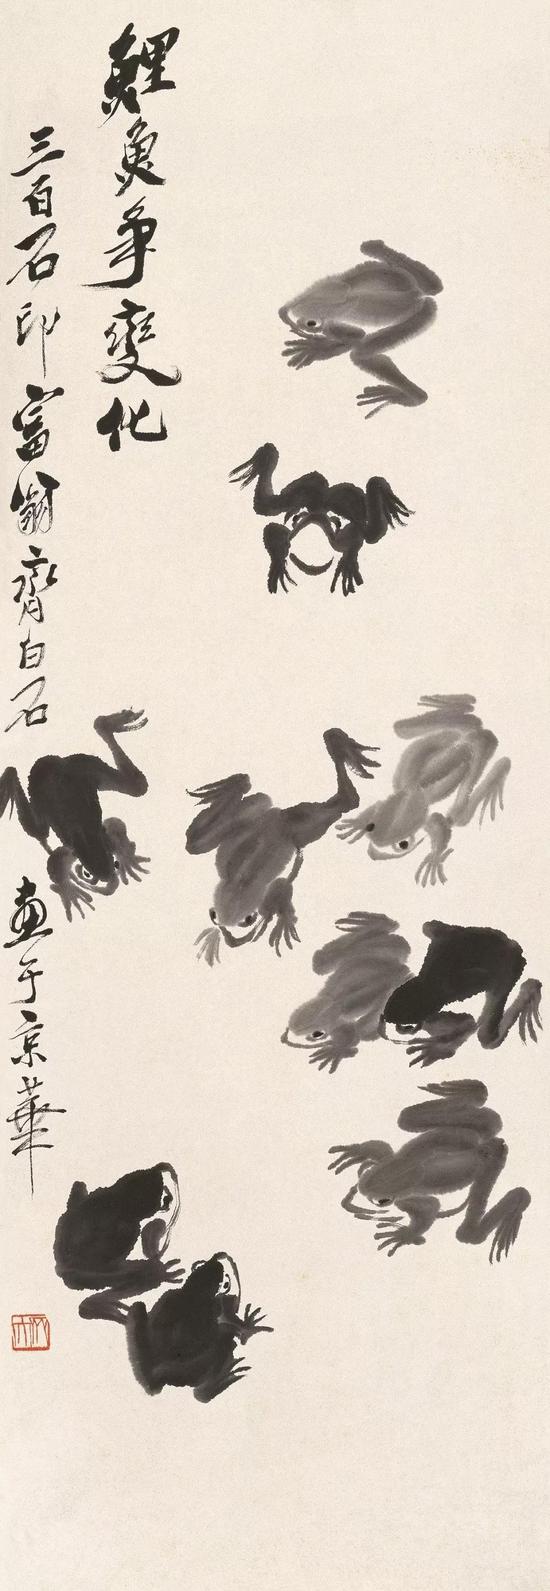 鲤魚争變化
三百石印富翁齊白石
畫于京華